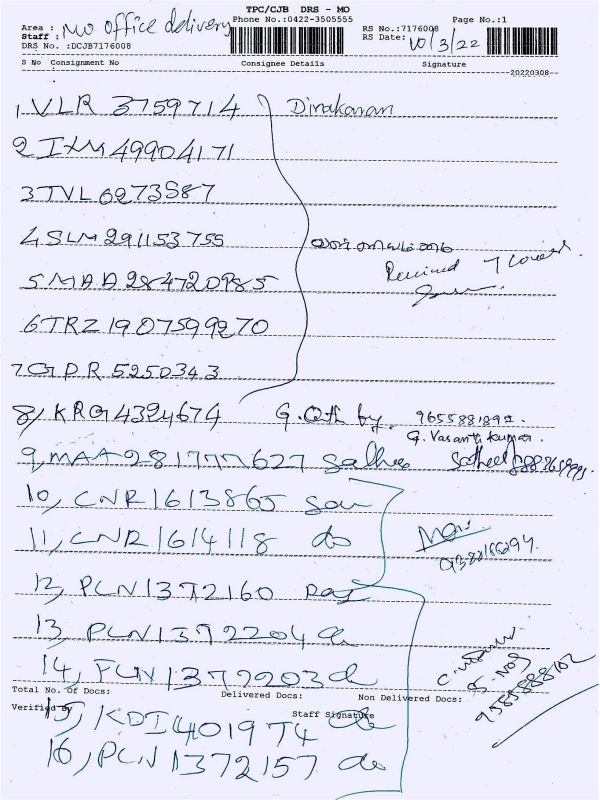 TPC/CJB DRS - MO
Area : MO office delivery Phone No.:0422-3505555 RS No.:7176008 Page No.:1
Staff : RS Date: 10/3/22
DRS No. :DCJB7176008
S No Consignment No Consignee Details Signature
20220308
1 VLR 3759714 Dinakaran
2 IXM 49904171
3 TVL 6273587
4 SLM 291153755
Received 7 Covers
5 MAA 284720985
6 TRZ 1907599270
7 GDR 5250343
8, KRG 4324674 G. by. 9655881892
G. Vasanth Kumar.
9, MAA 281777627 Sathee
10, CNR 1613865
11, CNR 1614118 do
12, PCN 1372160
13, PCN 1372204 do
14, PCN 1372203 do
Total No. Of Docs: Delivered Docs: Non Delivered Docs:
Verified By Staff Signature
15, KDI 401974 do
16, PCN 1372157 do